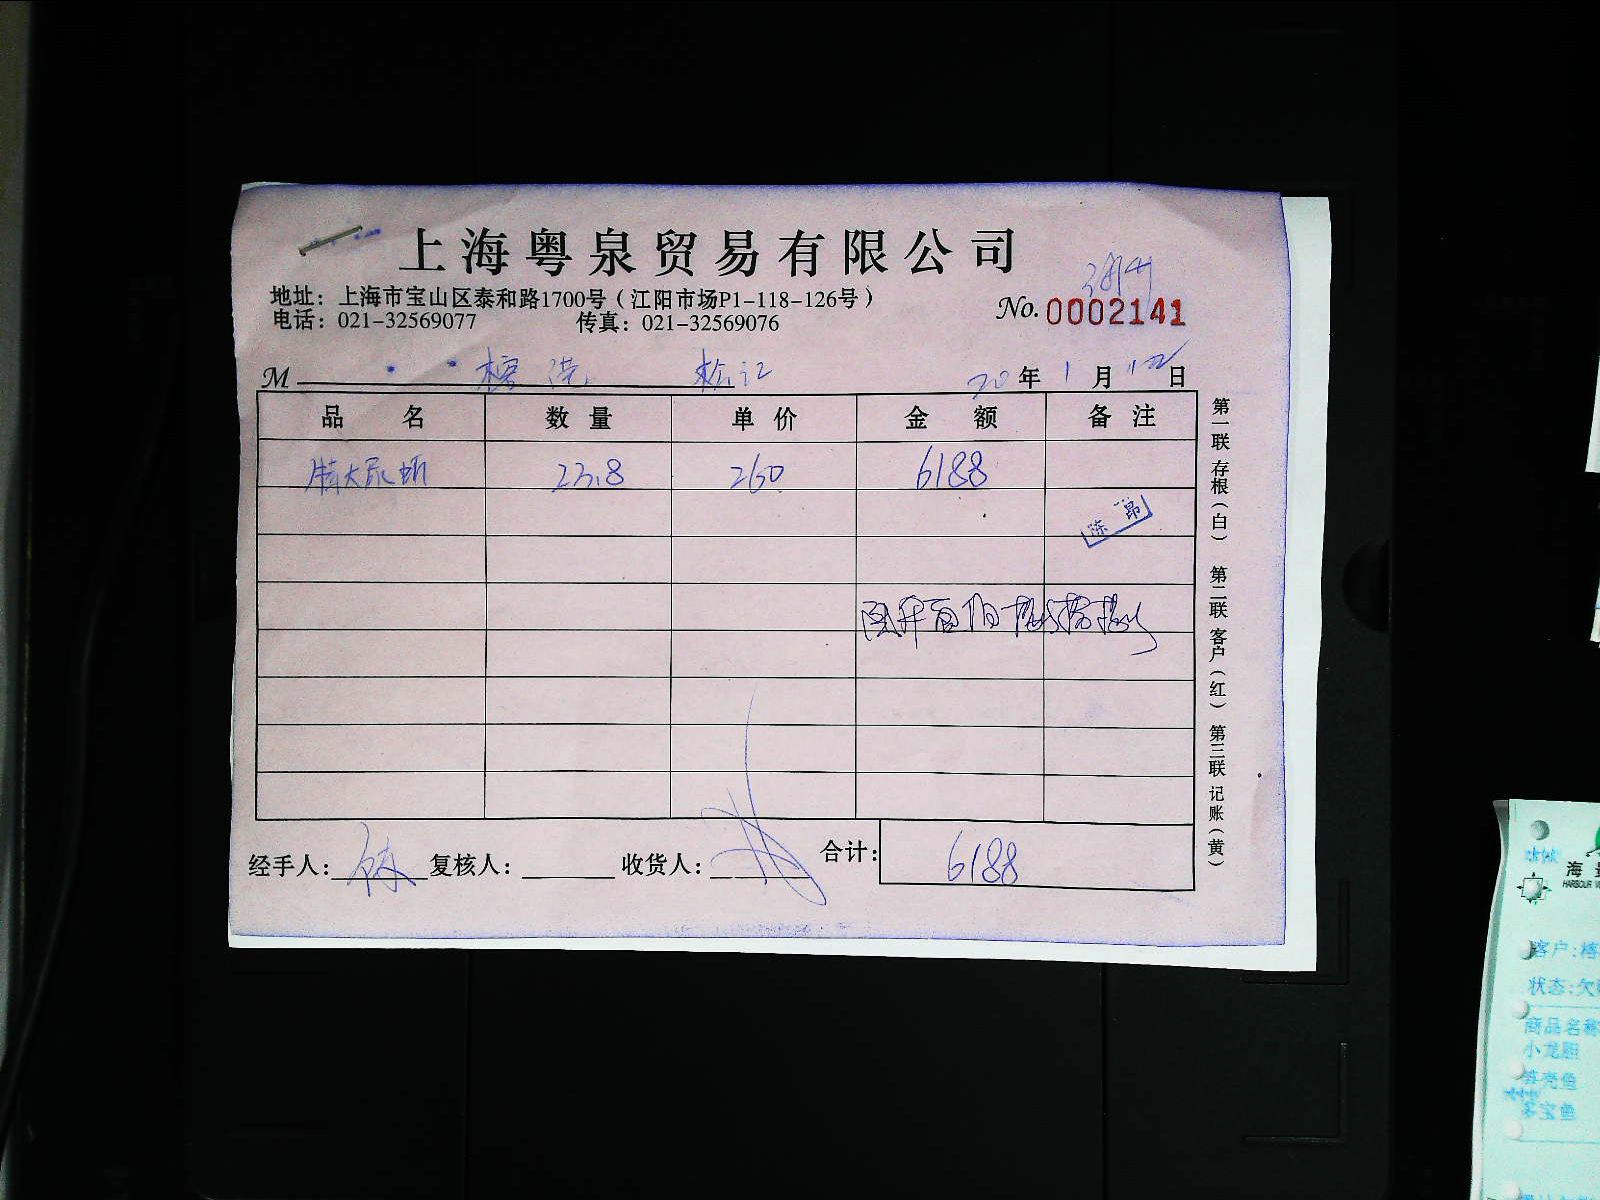 上海粤泉贸易有限公司
地址：上海市宝山区泰和路1700号（江阳市场P1-118-126号）
电话：021-32569077 传真：021-32569076
No. 0002141
M 榕港 松江 20年1月12日
品名 数量 单价 金额 备注
大尿虾 23.8 260 6188
陈昂
经手人： 复核人： 收货人： 合计： 6188
第一联 存根（白） 第二联 客户（红） 第三联 记账（黄）
海
HARBOUR
客户：榕
状态：欠
商品名称
小龙胆
笋壳鱼
多宝鱼